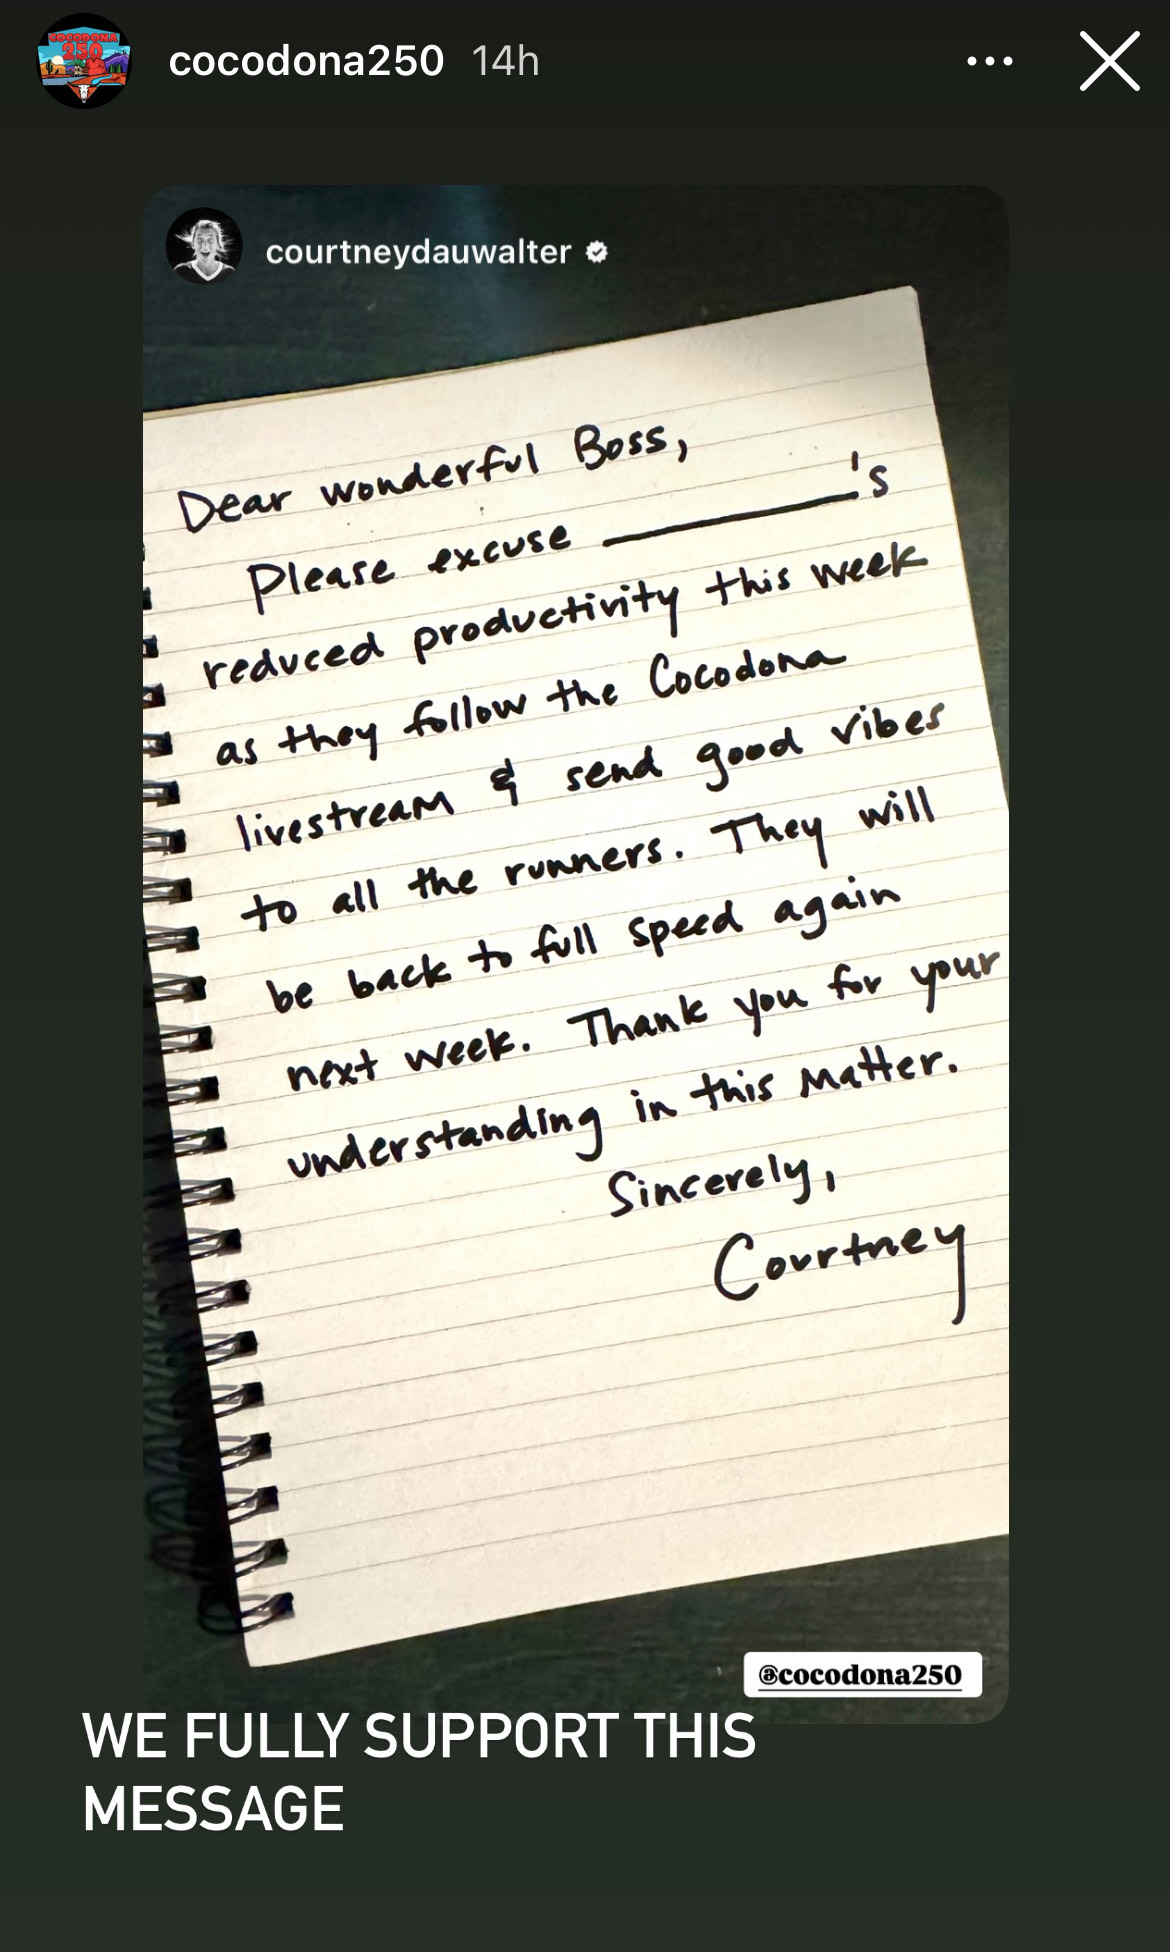 COCODONA
250
cocodona250 14h
courtneydauwalter
Dear wonderful Boss,
Please excuse ________'s
reduced productivity this week
as they follow the Cocodona
livestream & send good vibes
to all the runners. They will
be back to full speed again
next week. Thank you for your
understanding in this matter.
Sincerely,
Courtney
@cocodona250
WE FULLY SUPPORT THIS
MESSAGE